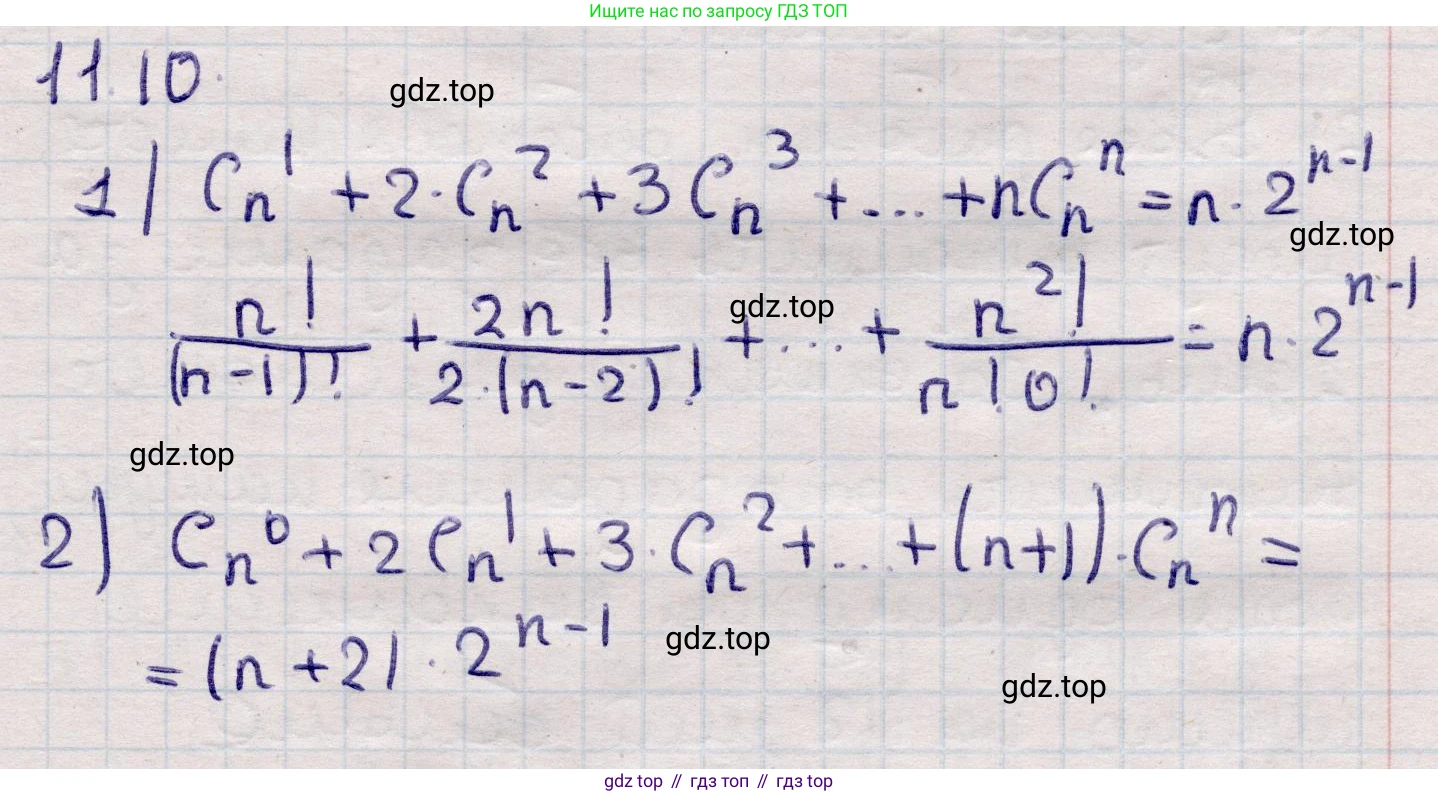 Ищите нас по запросу ГДЗ ТОП
11.10.
gdz.top
1) C_n^1 + 2·C_n^2 + 3C_n^3 + ... + nC_n^n = n·2^{n-1}
gdz.top
n!/(n-1)! + 2n!/2·(n-2)! + ... + n^2!/n!0! = n·2^{n-1}
gdz.top
gdz.top
2) C_n^0 + 2C_n^1 + 3·C_n^2 + ... + (n+1)·C_n^n =
= (n+2)·2^{n-1}
gdz.top
gdz.top
gdz top // гдз топ // гдз top